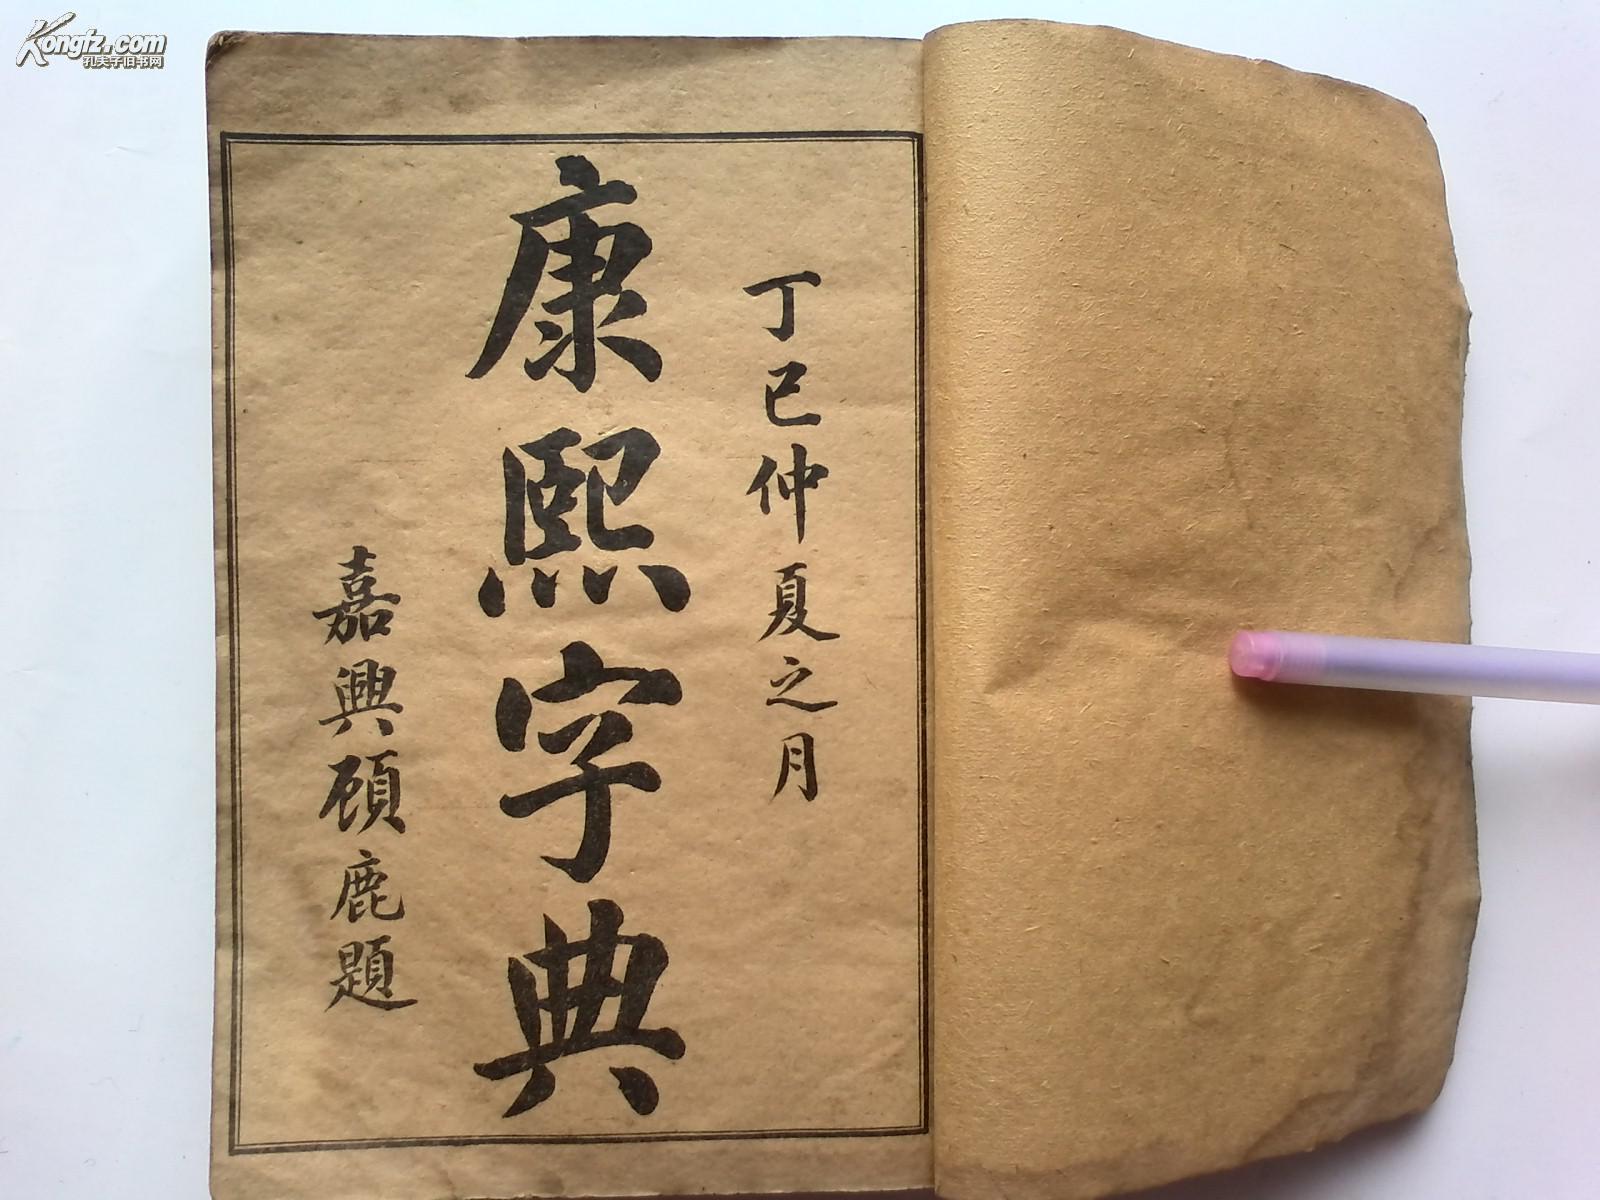 Kongfz.com
孔夫子旧书网
丁巳仲夏之月
康熙字典
嘉興顧鹿題